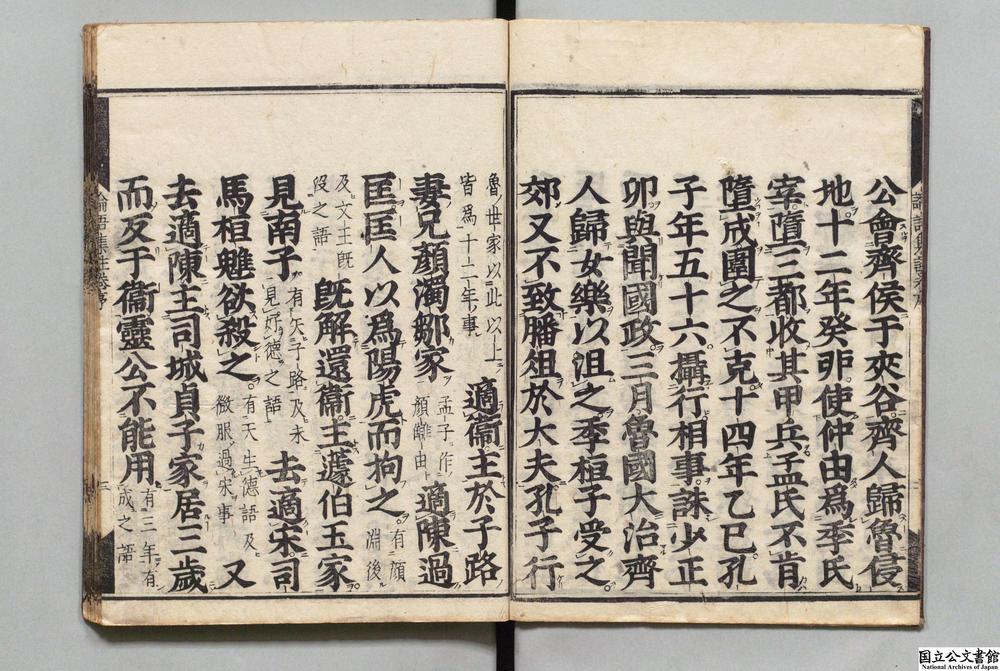 公會齊侯于夾谷齊人歸魯侵
地十二年癸卯使仲由為季氏
宰墮三都收其甲兵孟氏不肯
墮成圍之不克十四年乙巳孔
子年五十六攝行相事誅少正
卯與聞國政三月魯國大治齊
人歸女樂以沮之季桓子受之
郊又不致膰俎於大夫孔子行
魯世家以此以上
皆為十二年事
適衞主於子路
妻兄顏濁鄒家
孟子作
顏讎由
適陳過
匡匡人以為陽虎而拘之
有顏
淵後
及文王旣
沒之語
旣解還衞主蘧伯玉家
見南子
有矢子路及未
見好德之語
去適宋司
馬桓魋欲殺之
有天生德語及
微服過宋事
又
去適陳主司城貞子家居三歲
而反于衞靈公不能用
有三年有
成之語
論語集註卷序
国立公文書館
National Archives of Japan